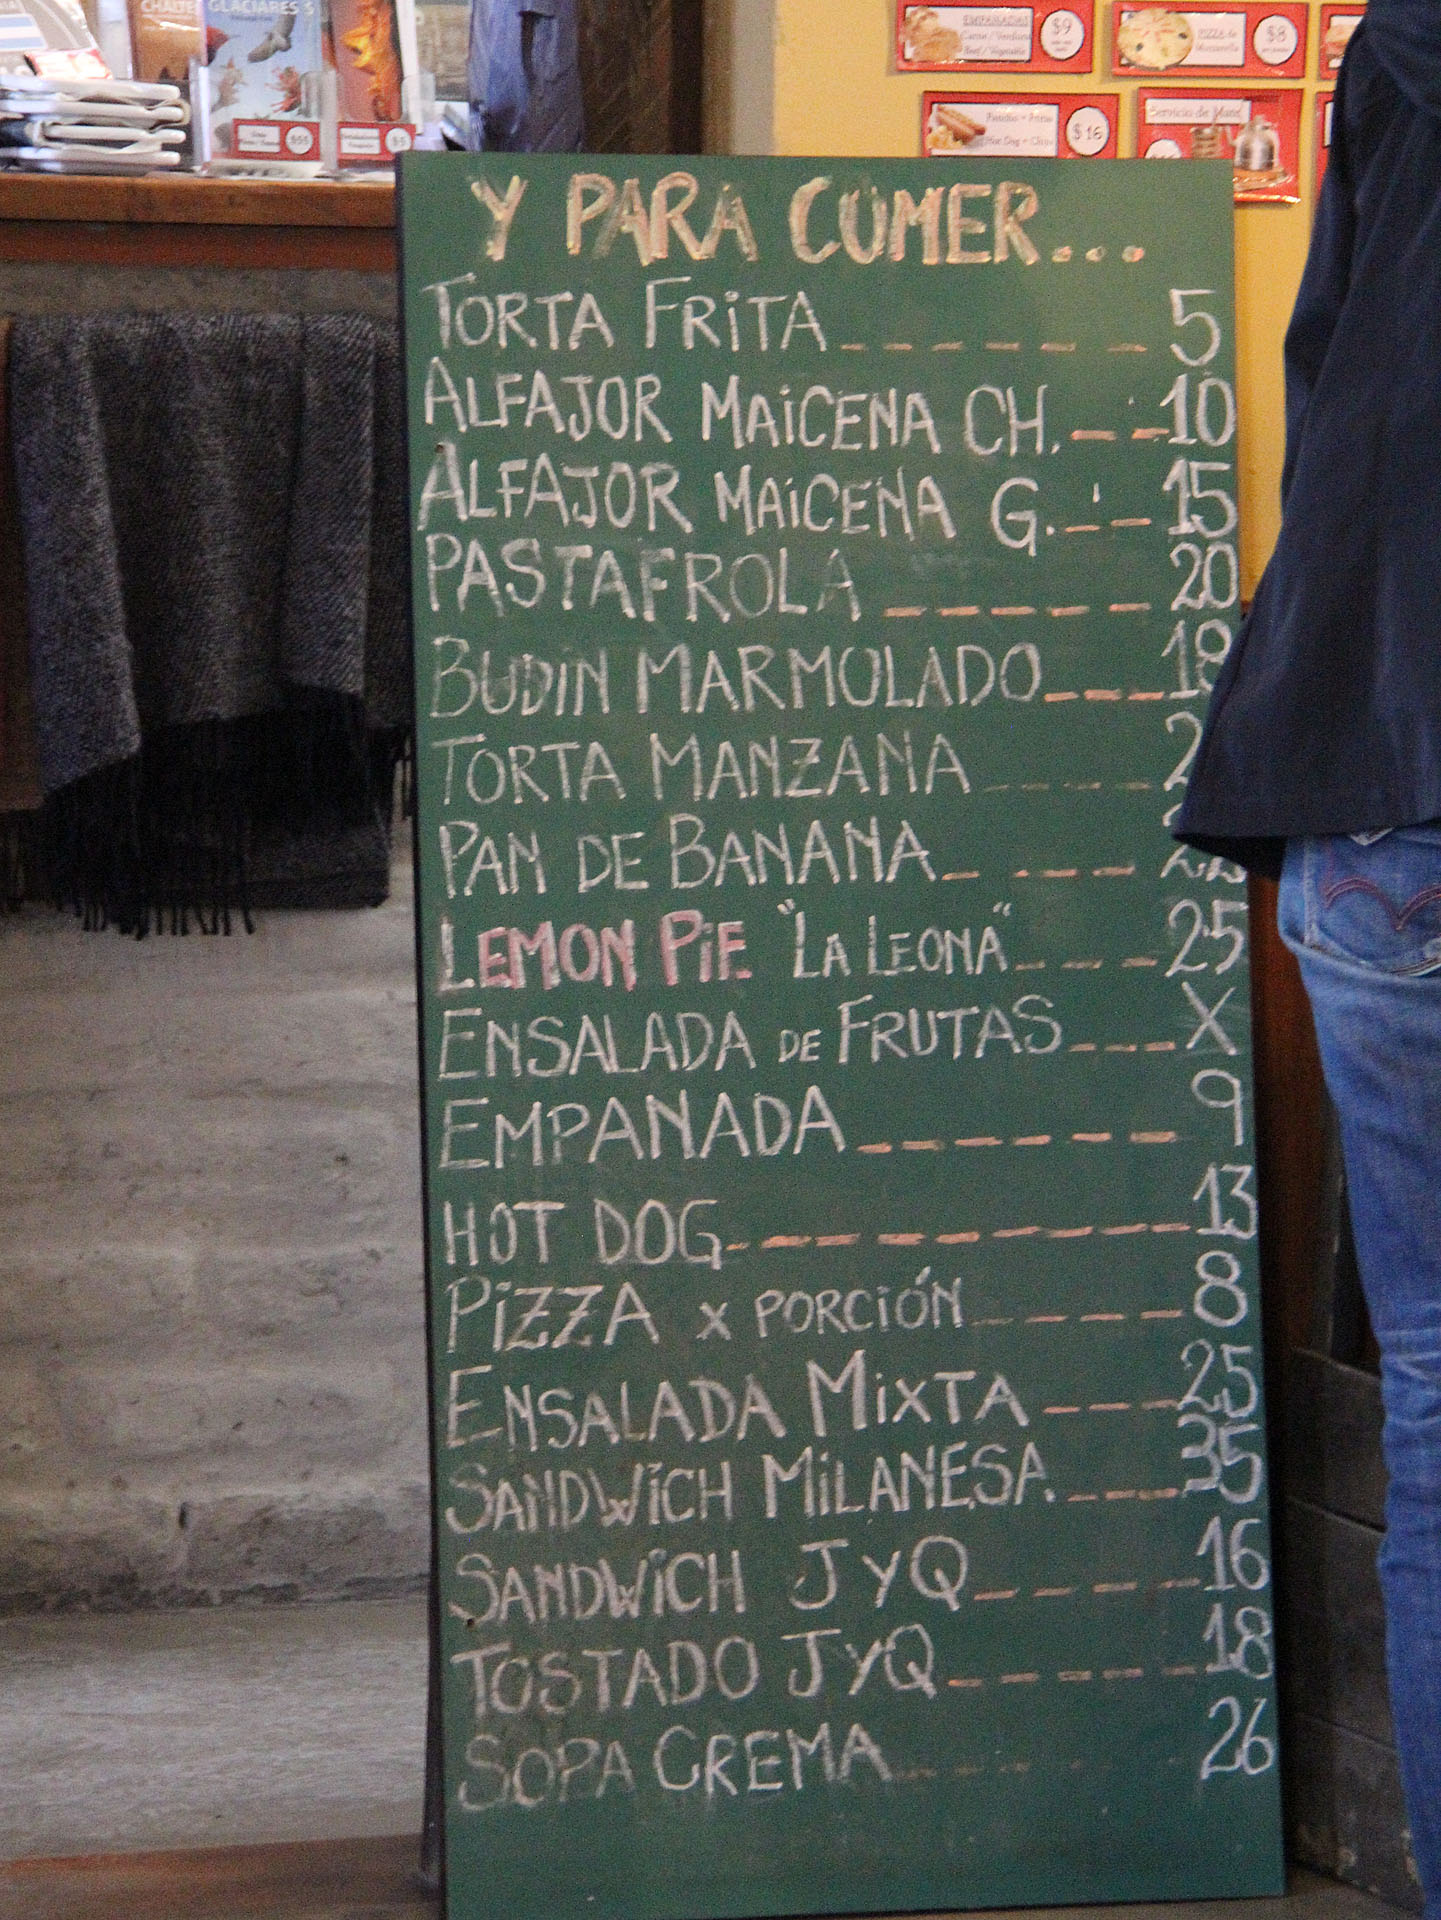 CHALTEN
GLACIARES
$55
$5
EMPANADAS
Carne / Verdura
Beef / Vegetable
$9
PIZZA de
Mozzarella
$8
Pancho + Papas
Hot Dog + Chips
$16
Servicio de Mate
Y PARA COMER...
TORTA FRITA 5
ALFAJOR MAICENA CH. 10
ALFAJOR MAICENA G. 15
PASTAFROLA 20
BUDIN MARMOLADO 18
TORTA MANZANA
PAN DE BANANA
LEMON PIE "LA LEONA" 25
ENSALADA DE FRUTAS X
EMPANADA 9
HOT DOG 13
PIZZA X PORCIÓN 8
ENSALADA MIXTA 25
SANDWICH MILANESA 35
SANDWICH JYQ 16
TOSTADO JYQ 18
SOPA CREMA 26